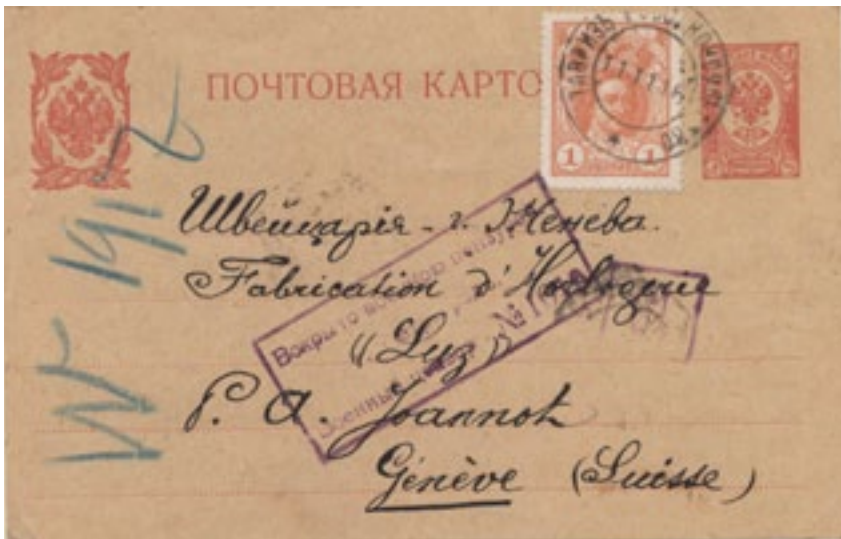 ПОЧТОВАЯ КАРТО
ТАВРИЗЪ
1 1
Швейцарія - г. Женева.
Fabrication d'Horlogerie
"Luz"
P. A. Joannot
Genève (Suisse)
Вскрыто военной цензурой
Военный
№
W 191